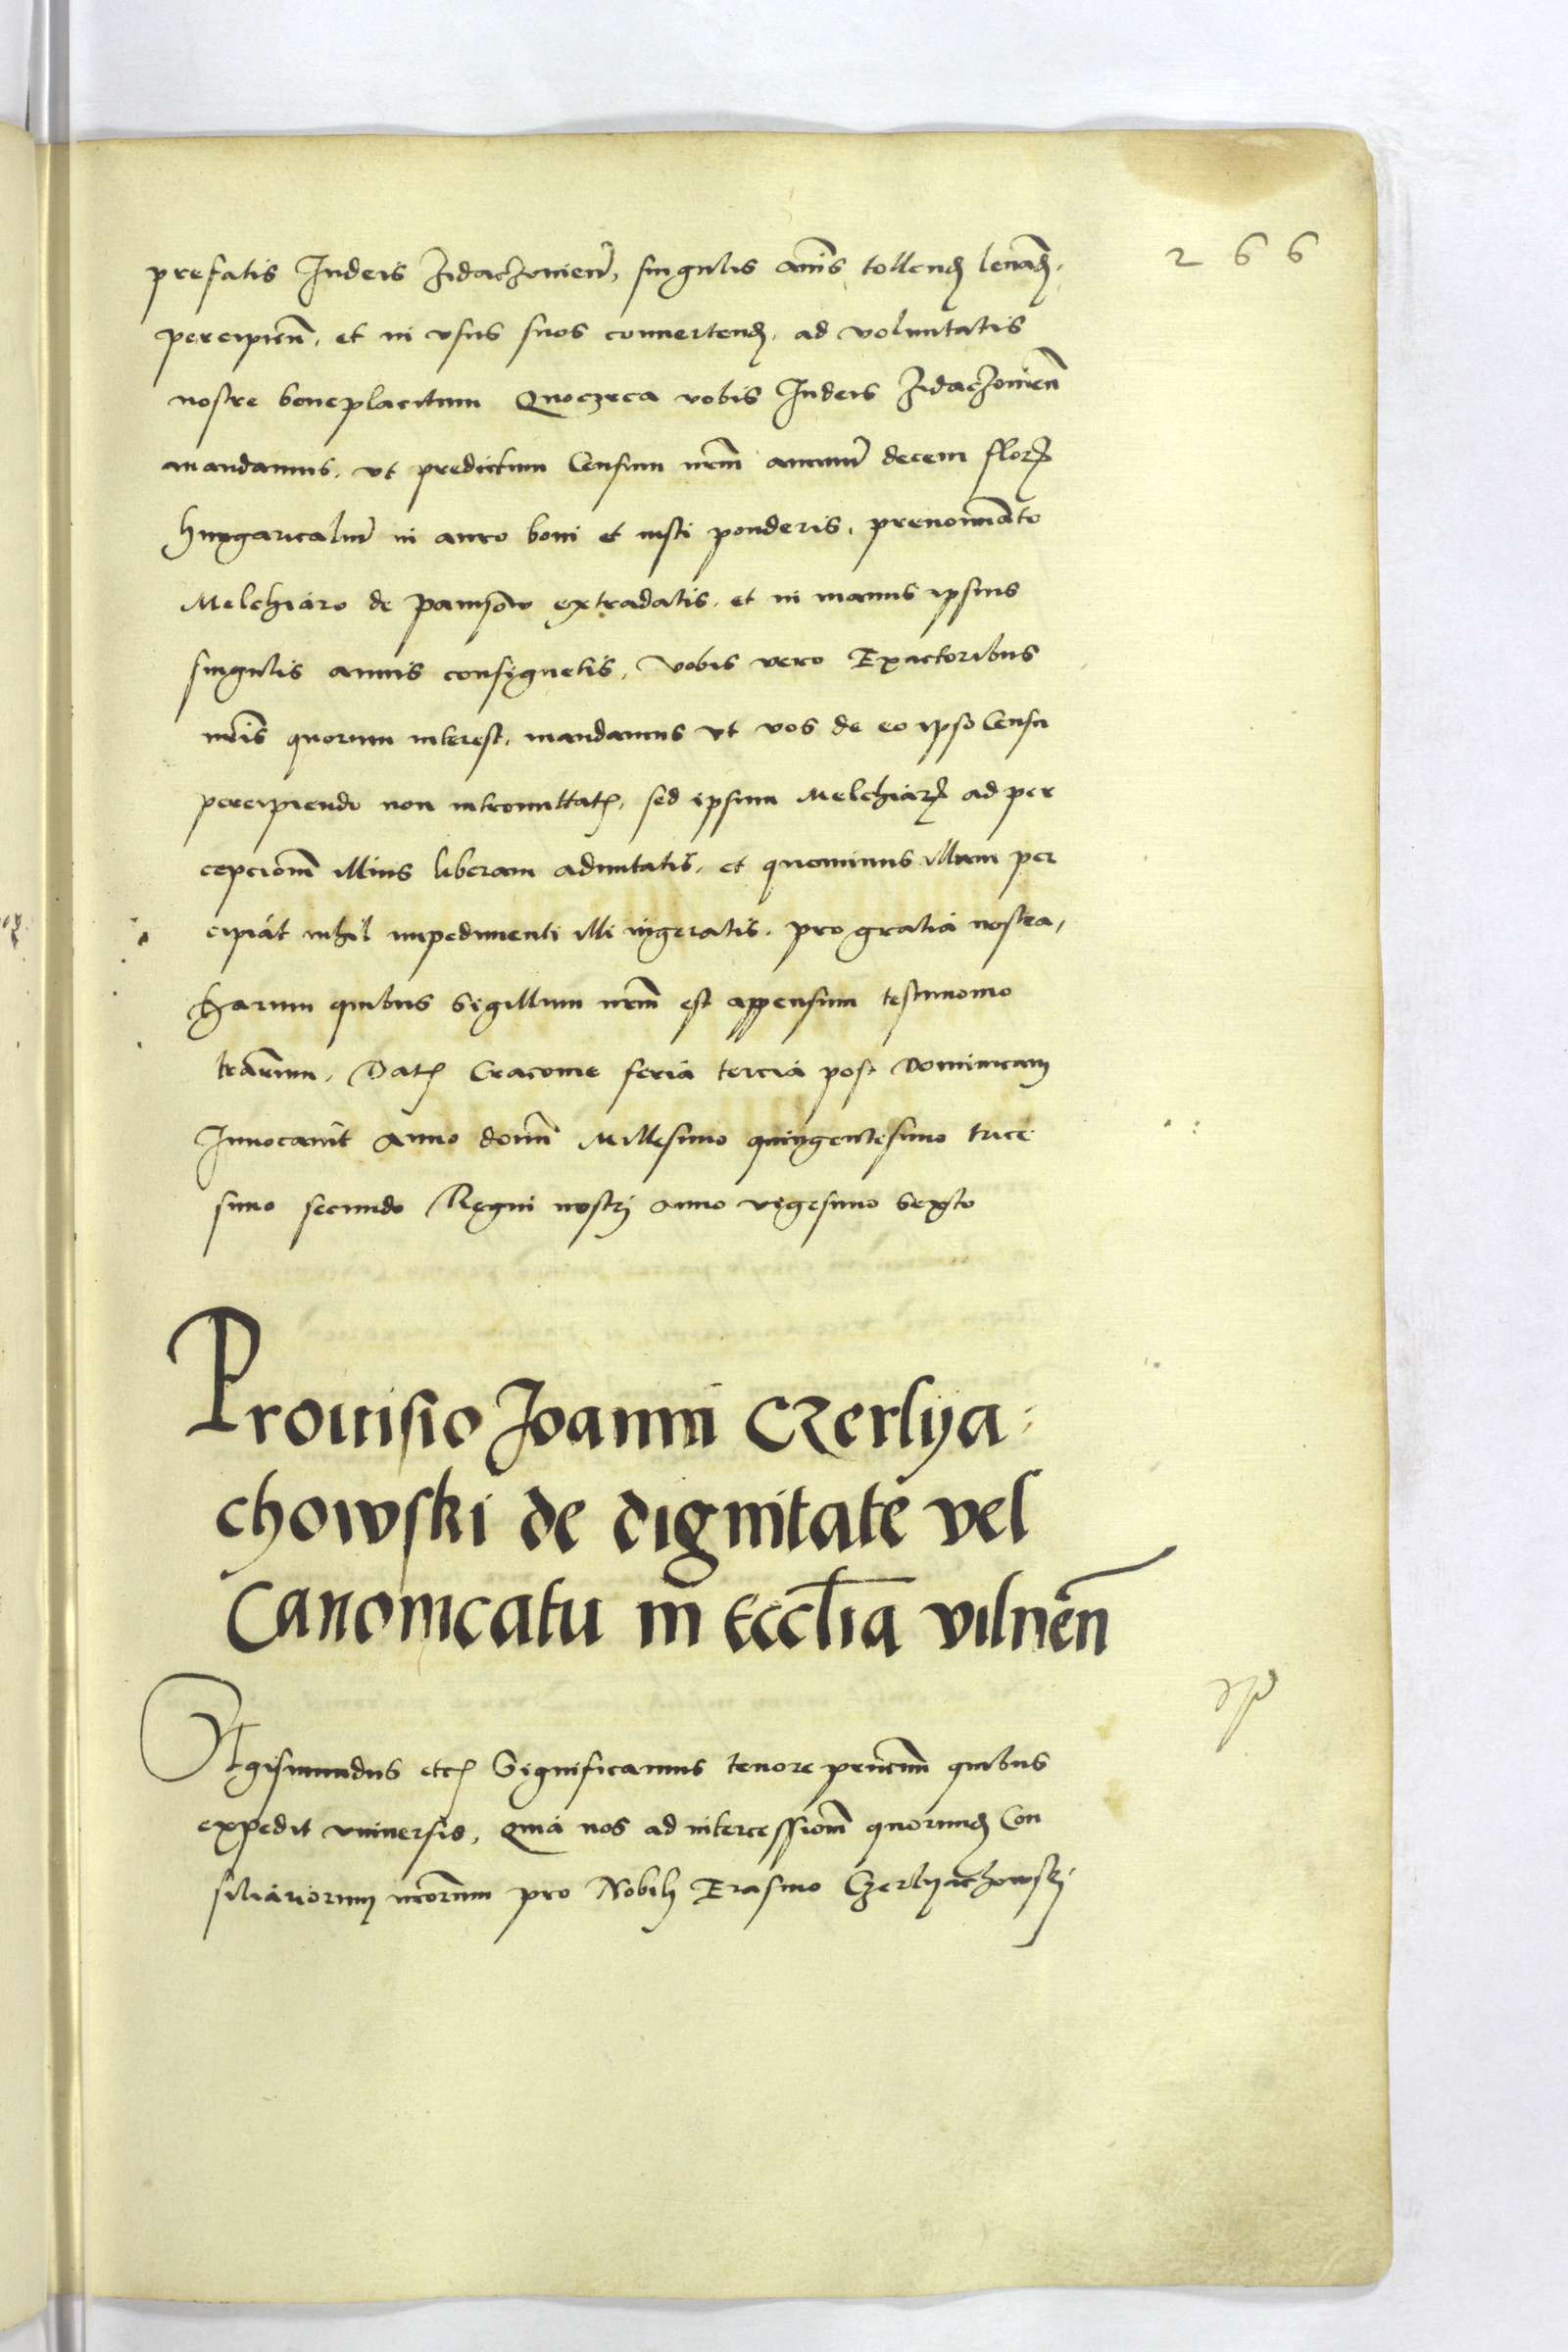 266
prefatis Iudeis Zidaczowien̄, singulis annis tollend̄ levand̄.
percipien̄. et in usus suos convertend̄. ad voluntatis
nostre beneplacitum Quoczrca vobis Iudeis Zidaczowien̄
mandamus. ut predictum Censum nr̄m annuū decem flor̄
hungaricaliū in auro boni et iusti ponderis. prenominato
Melchiaro de extradatis. et in manus ipsius
singulis annis consignetis. Vobis vero Exactoribus
nr̄is quorum interest. mandamus ut vos de eo ipso Censu
percipiendo non intromittatis, sed ipsum Melchiar̄ ad per
cepcionē illius liberam admittatis. et quominus illum per
cipiat nihil impedimenti illi ingeratis. pro gratia nostra,
Harum quibus Sigillum nr̄m est appensum testimonio
lr̄arum. Dat̄ Cracovie feria tercia post Dominicam
Invocavit Anno domī Millesimo quingentesimo trice
simo secundo Regni nostri Anno vigesimo Sexto
Provisio Joanni Czerlya=
chowski de dignitate vel
Canonicatu in Eccl̄ia vilnēn
Sigismundus etc̄ Significamus tenore pn̄cium quibus
expedit universis, Quia nos ad intercessionē quorund̄ Con
siliariorum nr̄orum pro Nobili Erasmo Czerlyachowski